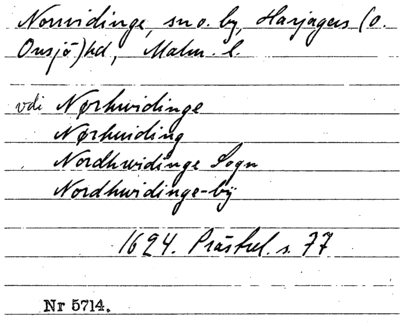 Norrvidinge, sn o. by, Harjagers (o.
Onsjö) hd, Malm. l.
vdi Nørhwidinge
Nørhuiding
Nordhwidinge Sogn
Nordhwidinge-bÿ
1624. Prästrel. s. 77
Nr 5714.